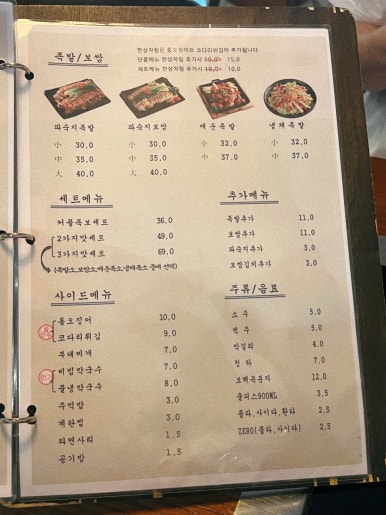 족발/보쌈
한상차림은 통오징어와 코다리튀김이 추가됩니다
단품메뉴 한상차림 추가시 19,0→ 15,0
세트메뉴 한상차림 추가시 19,0→ 10,0
파슬지족발 파슬지보쌈 매운족발 냉채족발
小 30,0 小 30,0 小 32,0 小 32,0
中 35,0 中 35,0 中 37,0 中 37,0
大 40,0 大 40,0
세트메뉴
커플족보세트 36,0
2가지맛세트 49,0
3가지맛세트 69,0
(족발소,보쌈소,매운족소,냉채족소 중에 선택)
추가메뉴
족발추가 11,0
보쌈추가 11,0
파슬지추가 3,0
보쌈김치추가 3,0
사이드메뉴
통오징어 10,0
코다리튀김 9,0
부대찌개 7,0
인기 비빔막국수 7,0
물냉막국수 8,0
주먹밥 3,0
계란찜 3,0
라면사리 1,5
공기밥 1,5
주류/음료
소주 5,0
맥주 5,0
막걸리 4,0
청하 7,0
보해복분자 12,0
쿨피스900ML 3,5
콜라,사이다,환타 2,5
ZERO(콜라,사이다) 2,5